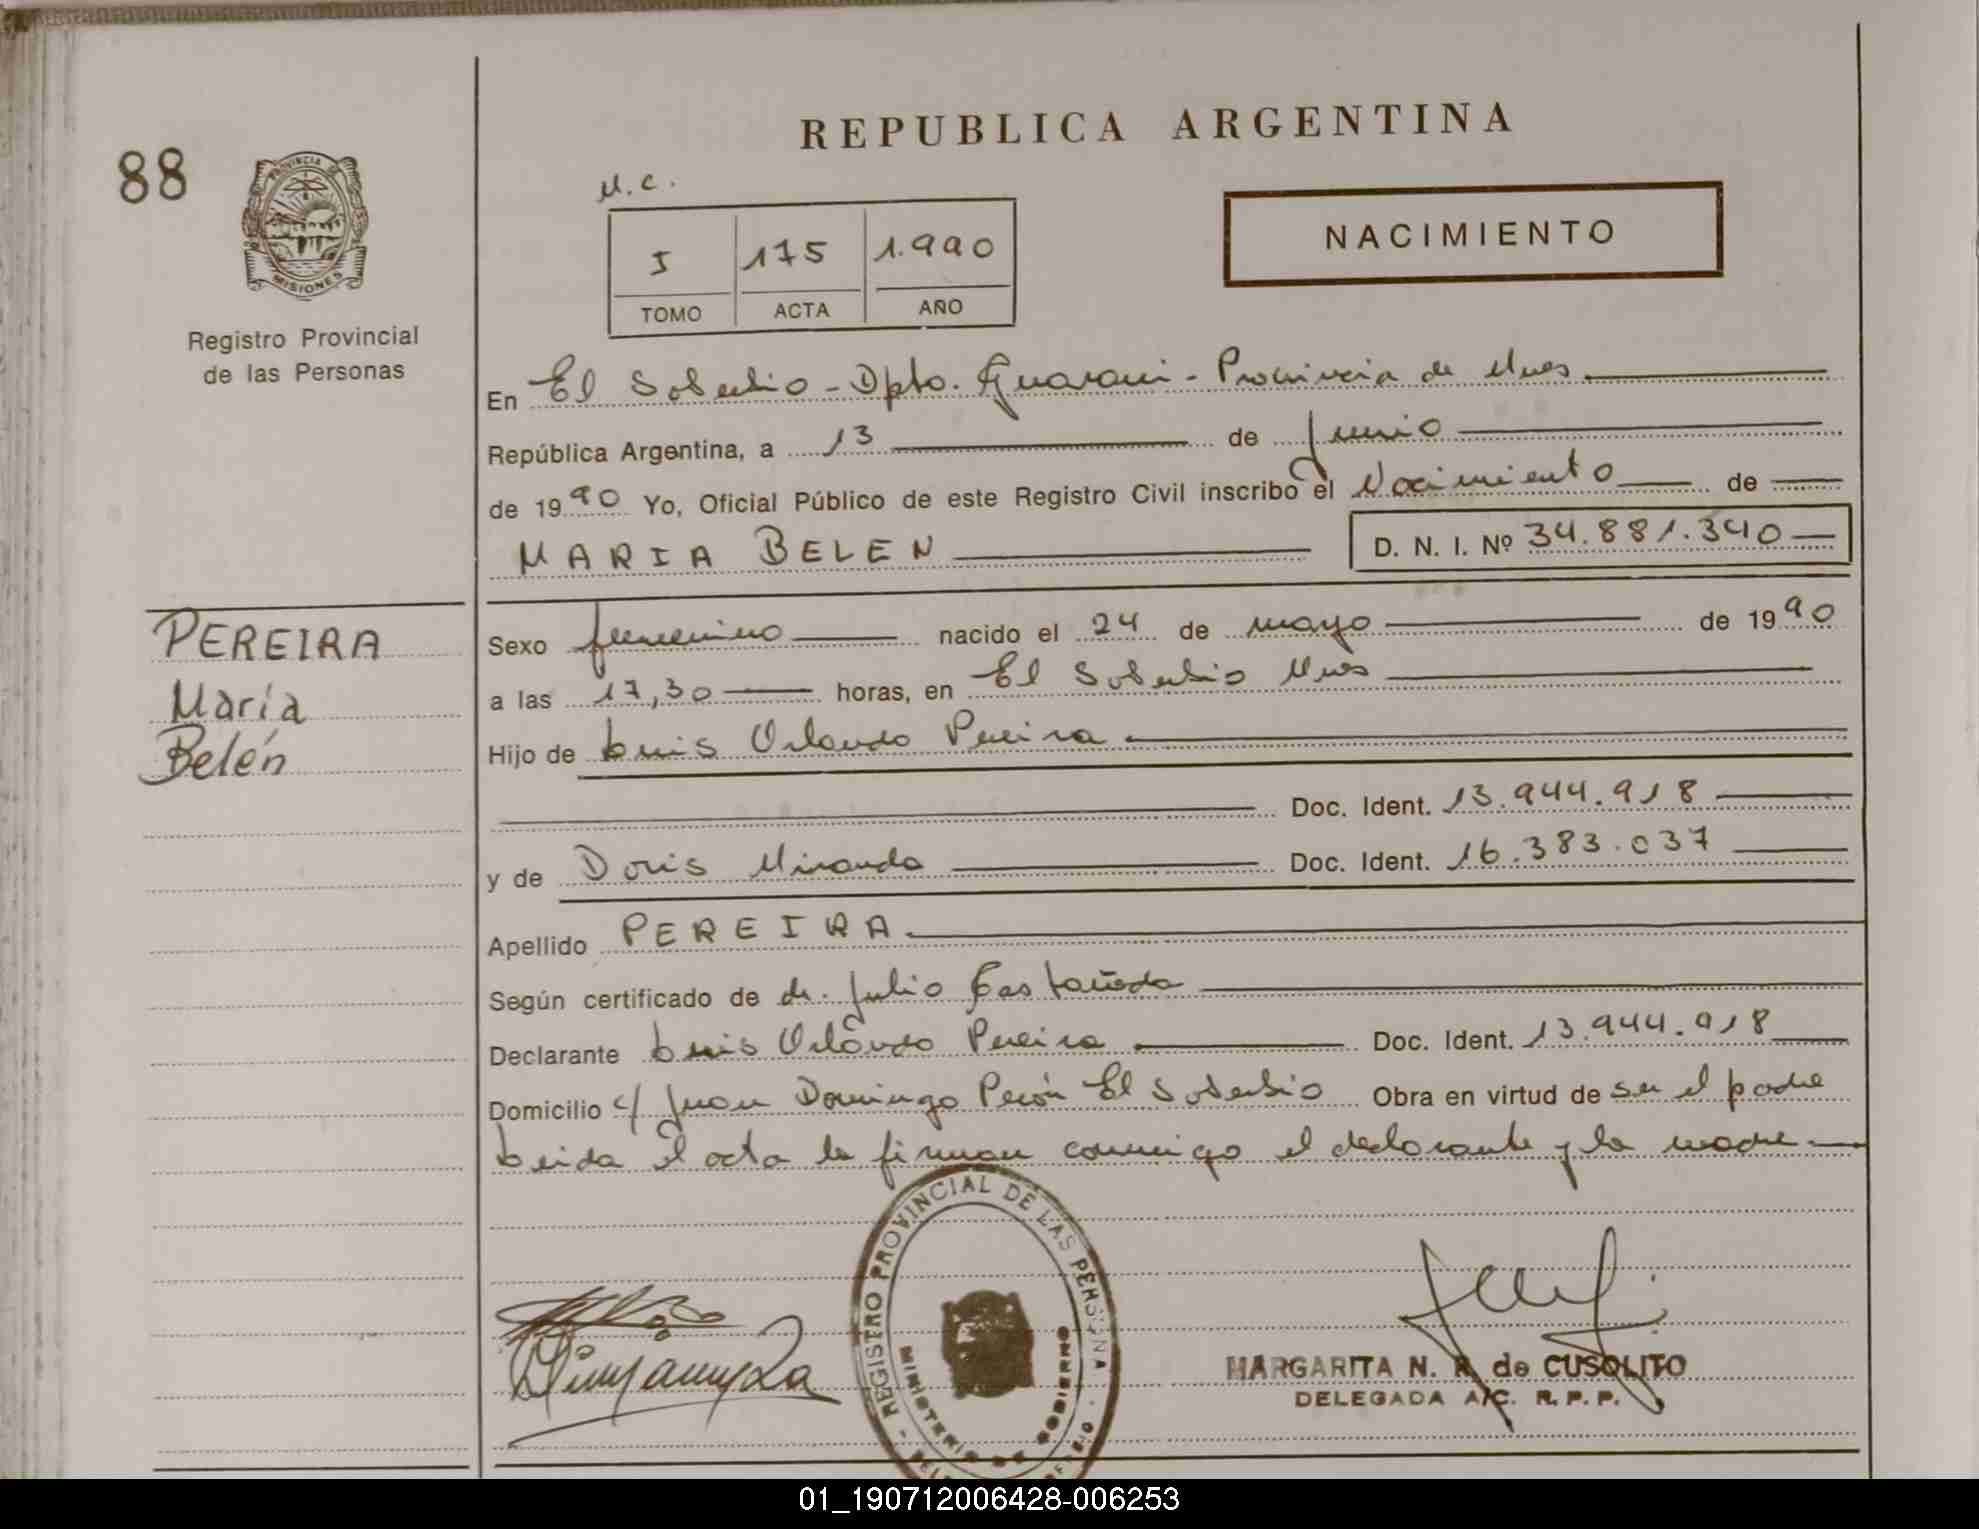 REPUBLICA ARGENTINA
88
PROVINCIA DE
MISIONES
Registro Provincial
de las Personas
M.C.
I 175 1.990
TOMO ACTA AÑO
NACIMIENTO
En El Soberbio - Dpto. Guarani - Provincia de Mnes
República Argentina, a 13 de Junio
de 1990 Yo, Oficial Público de este Registro Civil inscribo el Nacimiento de
MARIA BELEN D. N. I. Nº 34.881.340
PEREIRA
María
Belén
Sexo femenino nacido el 24 de mayo de 1990
a las 17,30 horas, en El Soberbio Mnes
Hijo de Luis Orlando Pereira
Doc. Ident. 13.944.918
y de Doris Miranda Doc. Ident. 16.383.037
Apellido PEREIRA
Según certificado de dr. Julio Castañeda
Declarante Luis Orlando Pereira Doc. Ident. 13.944.918
Domicilio c/ Juan Domingo Perón El Soberbio Obra en virtud de ser el padre
Leida el acta la firman conmigo el declarante y la madre
REGISTRO PROVINCIAL DE LAS PERSONA
MINISTERIO DE GOBIERNO
MARGARITA N. R. de CUSOLITO
DELEGADA A/C. R.P.P.
01_190712006428-006253